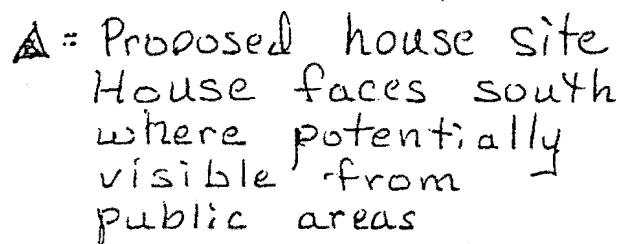 = Proposed house site
House faces south
where potentially
visible from
public areas